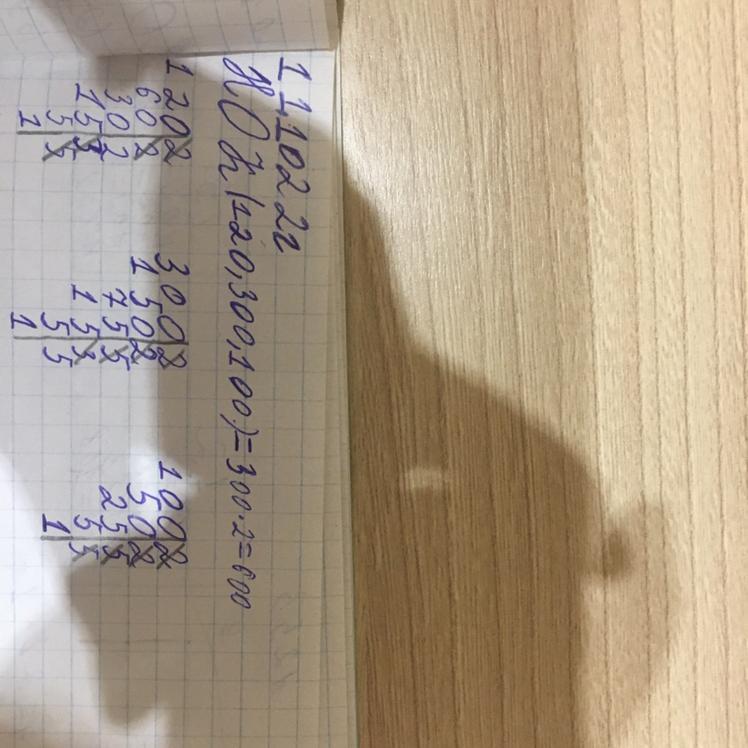 11.10.22г
НОК(120,300,100)=300·2=600
120 2 300 2 100 2
60 2 150 2 50 2
30 2 75 5 25 5
15 3 15 3 5 5
5 5 5 5 1
1 1